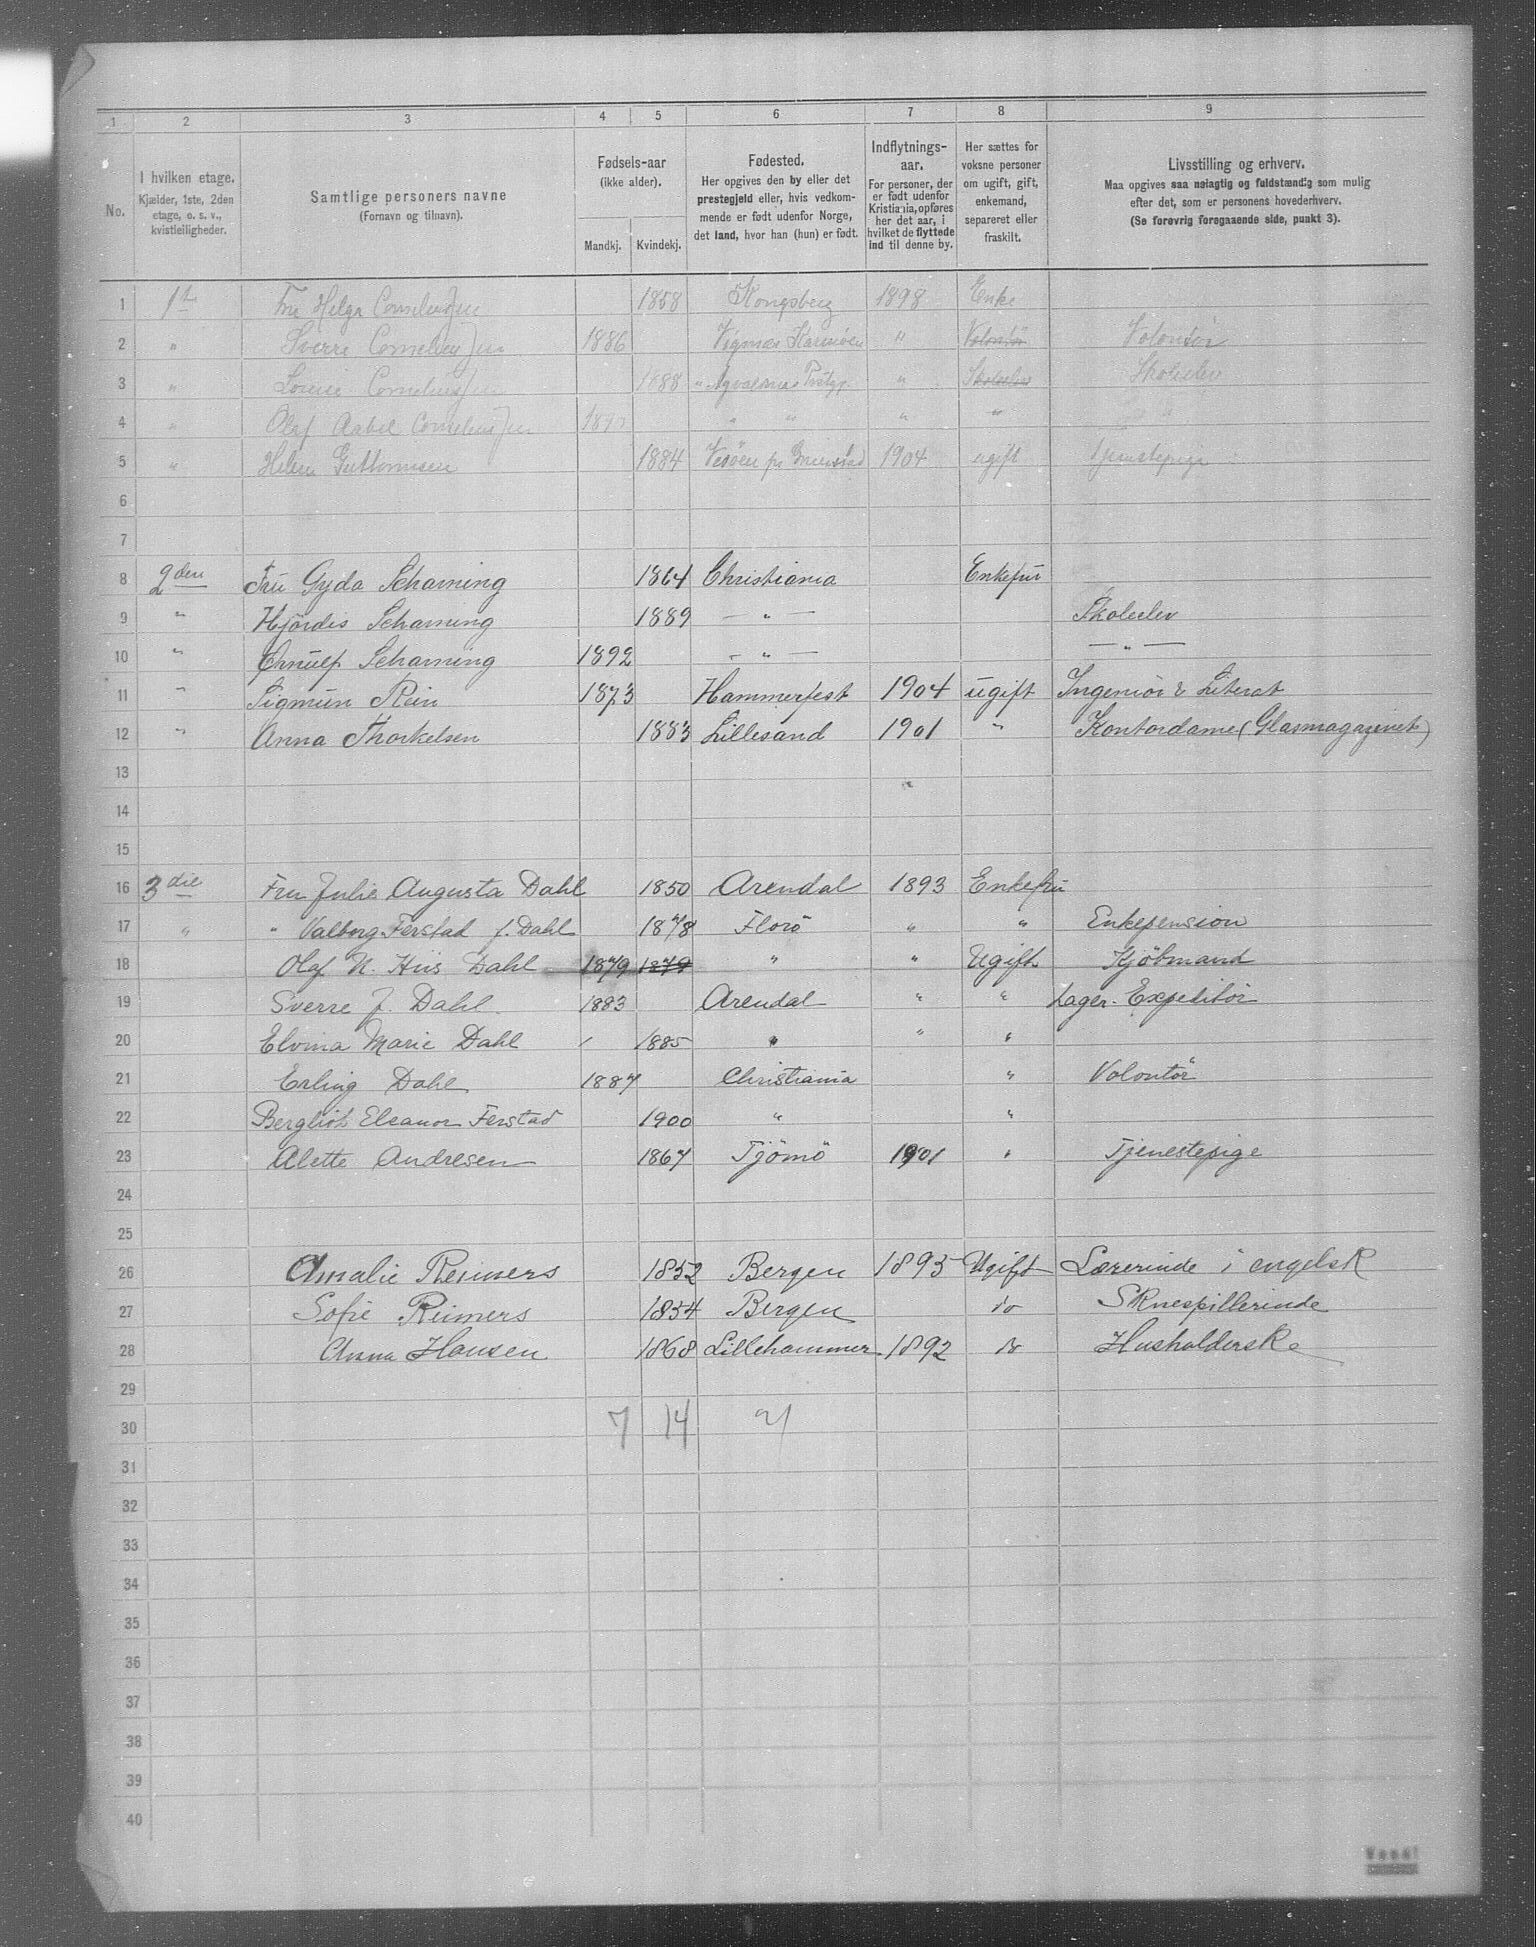 1 2 3 4 5 6 7 8 9
No.
I hvilken etage.
Kjælder, 1ste, 2den
etage, o. s. v.,
kvistleiligheder.
Samtlige personers navne
(Fornavn og tilnavn).
Fødsels-aar
(ikke alder).
Mandkj. Kvindekj.
Fødested.
Her opgives den by eller det
prestegjeld eller, hvis vedkom-
mende er født udenfor Norge,
det land, hvor han (hun) er født.
Indflytnings-
aar.
For personer, der
er født udenfor
Kristiania, opføres
her det aar, i
hvilket de flyttede
ind til denne by.
Her sættes for
voksne personer
om ugift, gift,
enkemand,
separeret eller
fraskilt.
Livsstilling og erhverv.
Maa opgives saa nøiagtig og fuldstændig som mulig
efter det, som er personens hovederhverv.
(Se forøvrig foregaaende side, punkt 3).
1 Fru Helga Corneliussen 1858 Kongsberg 1898 Enke
2 " Sverre Corneliussen 1886 " Volontør Volontør
3 " Louise Corneliussen 1888 " Skoleelev Skoleelev
4 " Olaf Aabel Corneliussen " " " "
5 " Helene Guttormsen 1884 1904 ugift Tjenestepige
6
7
8 2den Fru Gyda Scharning 1864 Christiania Enkefru
9 " Hjördis Scharning 1889 — " — Skoleelev
10 " Ørnulf Scharning 1892 — " — — " —
11 " Sigmun Rein 1873 Hammerfest 1904 ugift Ingeniör & Literat
12 " Anna Thorkelsen 1883 Lillesand 1901 " Kontordame (Glasmagazinet)
13 "
14
15
16 3die Fru Julie Augusta Dahl 1850 Arendal 1893 Enkefru
17 " " Valborg Ferstad f. Dahl 1878 Florö " " Enkepension
18 Olaf N. Hris Dahl 1879 1879 " " Ugift Kjöbmand
19 Sverre J. Dahl 1883 Arendal " " Lager-Expeditör
20 Elvina Marie Dahl / 1885 " " "
21 Erling Dahl 1887 Christiania " Volontör
22 Bergliot Eleanor Ferstad 1900 " "
23 Alette Andresen 1867 Tjömö 1901 " Tjenestepige
24
25
26 Amalie Reimers 1852 Bergen 1895 Ugift Lærerinde i engelsk
27 Sofie Reimers 1854 Bergen do Skuespillerinde
28 Anna Hansen 1868 Lillehammer 1892 do Husholderske
29
30 7 14 21
31
32
33
34
35
36
37
38
39
40